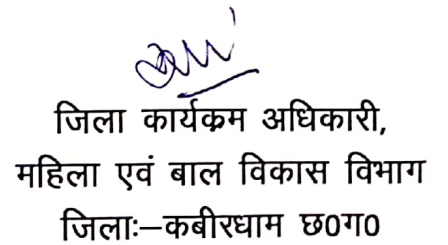 जिला कार्यक्रम अधिकारी,
महिला एवं बाल विकास विभाग
जिलाः–कबीरधाम छ0ग0